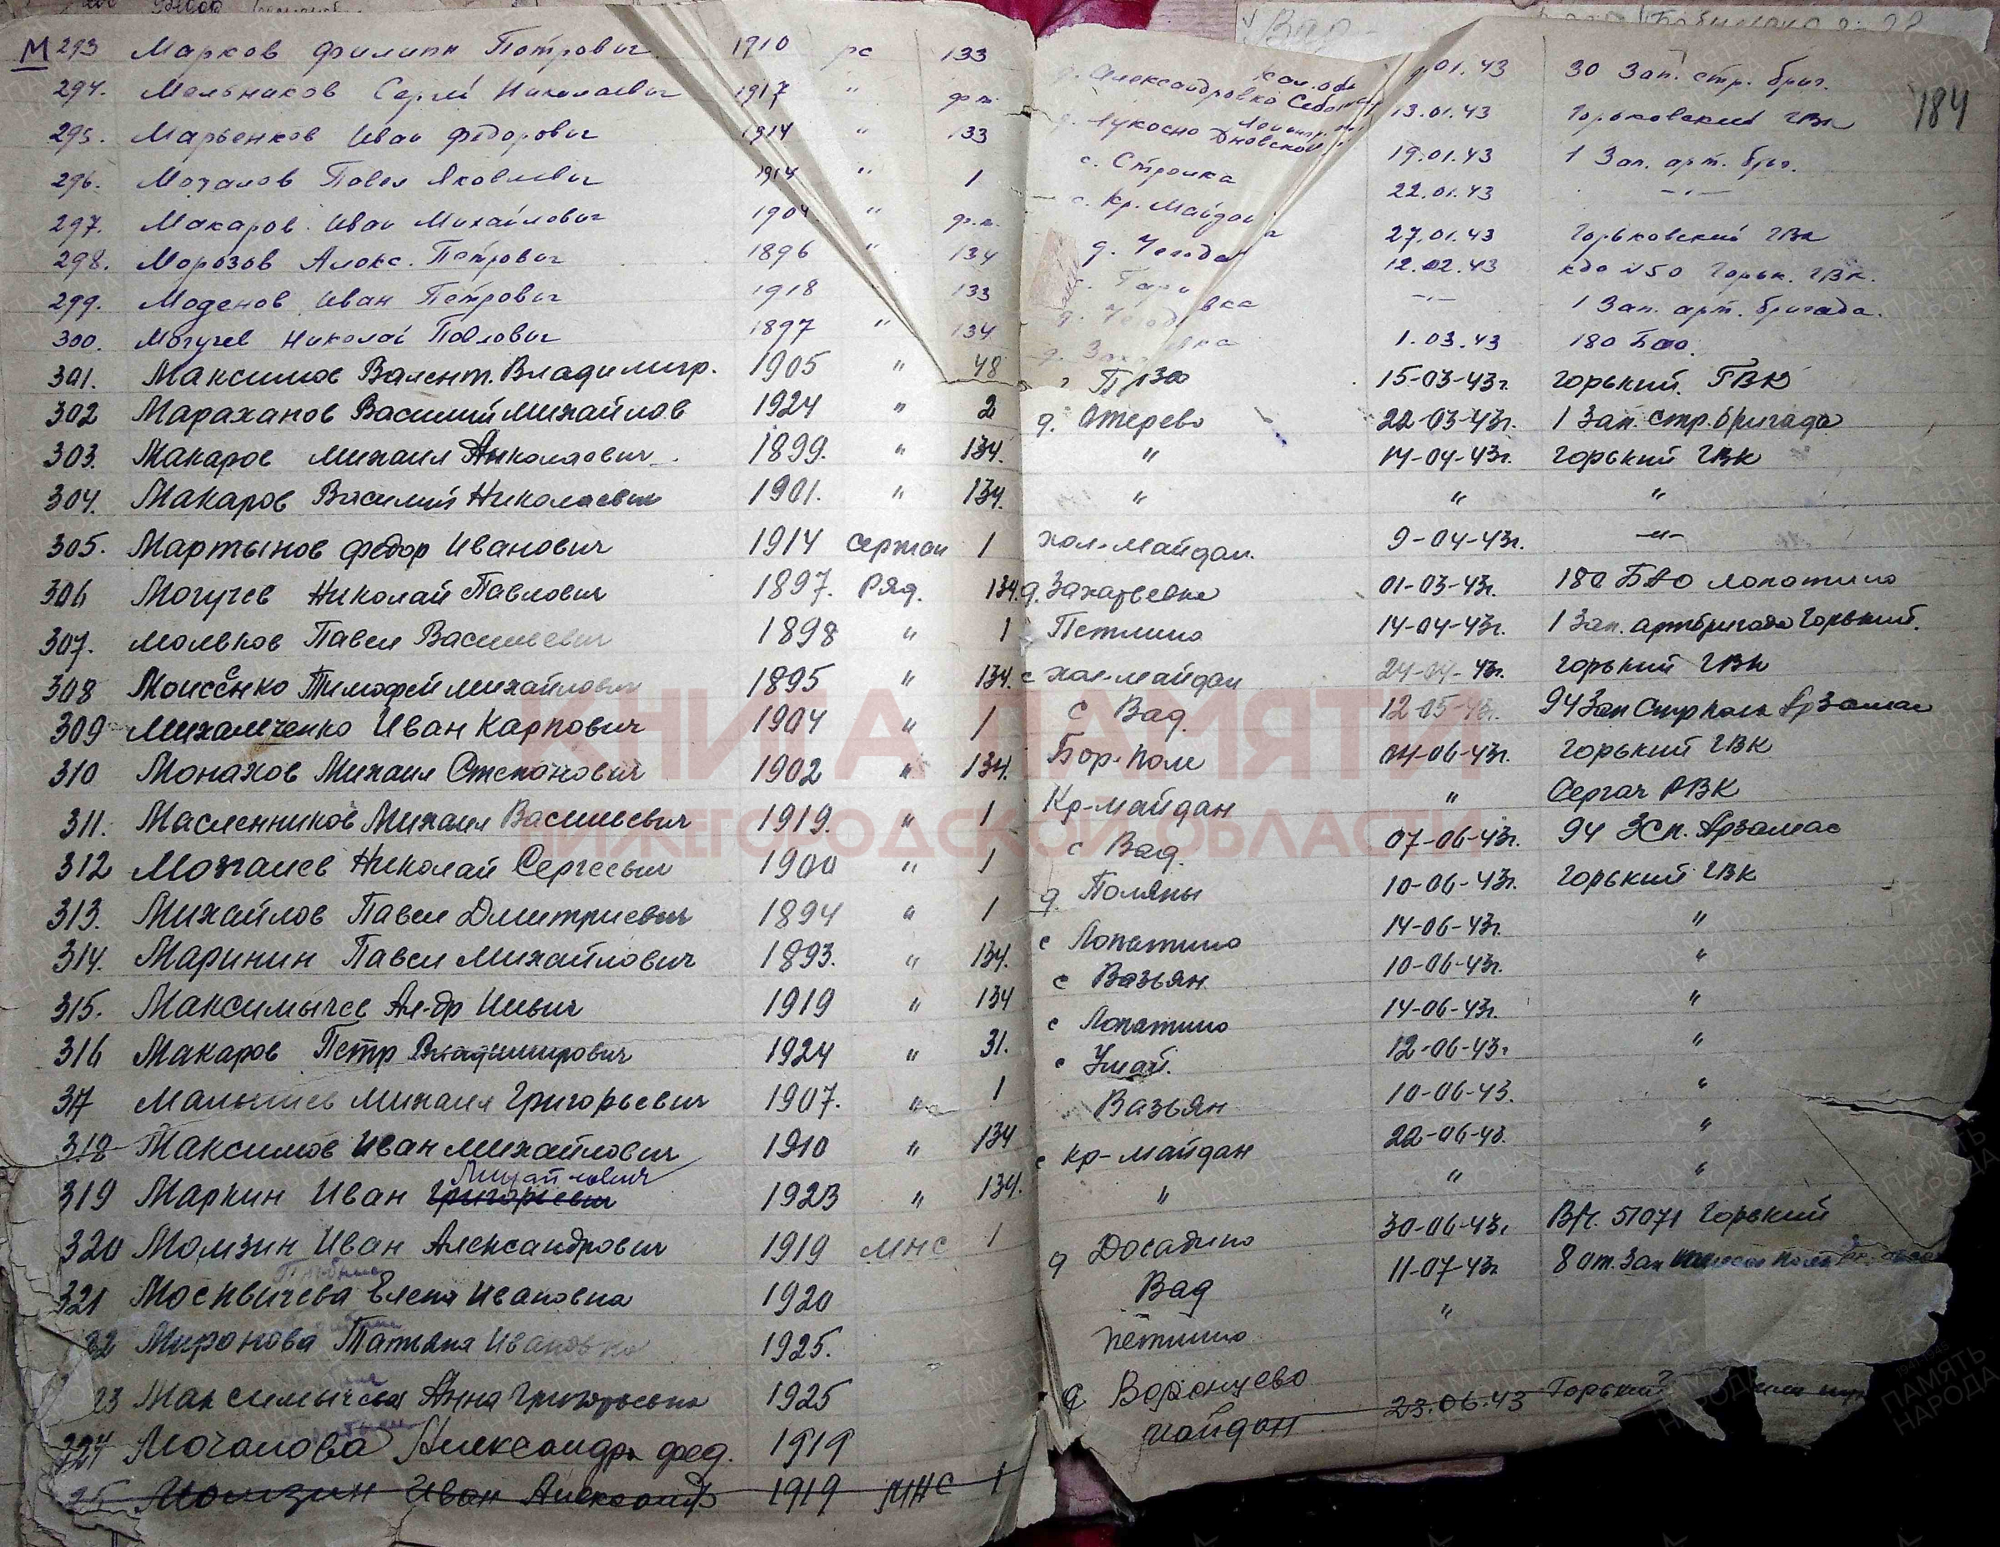 М 293 Марков Филипп Петрович 1910 рс 133 01.43 30 Зап. стр. бриг.
294. Мельников Сергей Николаевич 1917 " ф.п. д. Александровка 13.01.43 Горьковский ГВК 184
295. Марьенков Иван Федорович 1914 " 133 д. Лукосно Дновской 19.01.43 1 Зап. арт. бриг.
296. Мочалов Павел Яковлевич 1914 " 1 с. Стрелка 22.01.43 -"-
297. Макаров Иван Михайлович 1904 " ф.п. с. Кр. Майдан 27.01.43 Горьковский ГВК
298. Морозов Алекс. Петрович 1896 " 134 д. 12.02.43 кда №50 Горьк. ГВК.
299. Моденов Иван Петрович 1918 133 -"- 1 Зап. арт. бригада.
300. Могучев Николай Павлович 1897 " 134 1.03.43 180 Бао.
301. Максимов Валент. Владимир. 1905 " 48 15-03-43г. Горький ГВК
302 Мараханов Василий Михайлов 1924 " 2 д. Отерево 22-03-43г. 1 Зап. стр. бригада
303. Макаров Михаил Николаевич 1899. " 134. " 14-04-43г. Горький ГВК
304. Макаров Василий Николаевич 1901. " 134. " " "
305. Мартынов Федор Иванович 1914 сержан 1 хол-Майдан. 9-04-43г. -"-
306 Могучев Николай Павлович 1897. Ряд. 134. д. Захарьевка 01-03-43г. 180 БАО Лопатино
307. Мольков Павел Васильевич 1898 " 1 Петлино 14-04-43г. 1 Зап. артбригада Горький.
308 Моисеенко Тимофей Михайлович 1895 " 134. с хол-майдан 24-04-43г. Горький ГВК
309 Михальченко Иван Карпович 1904 " 1 с Вад. 12-05-43г. 94 Зап Стр полк Арзамас
310 Монахов Михаил Степанович 1902 " 134. Бор-поле 04-06-43г. Горький ГВК
311. Масленников Михаил Васильевич 1919. " 1 Кр-майдан " Сергач РВК
312 Можаев Николай Сергеевич 1900 " 1 с Вад. 07-06-43г. 94 ЗСП. Арзамас
313. Михайлов Павел Дмитриевич 1894 " 1 д. Поляны 10-06-43г. Горький ГВК
314. Маринин Павел Михайлович 1893. " 134. с Лопатино 14-06-43г. "
315. Максимычев Ал-др Ильич 1919 " 134 с Вазьян 10-06-43г. "
316 Макаров Петр Владимирович 1924 " 31. с Лопатино 14-06-43г. "
317 Малышев Михаил Григорьевич 1907. " 1 с Умай. 12-06-43г "
318 Максимов Иван Михайлович 1910 " 134 Вазьян 10-06-43. "
Михайлович
319 Маркин Иван Григорьевич 1923 " 134. с кр-майдан 22-06-43. "
320 Момзин Иван Александрович 1919 МНС 1 " " "
321 Москвичева Елена Ивановна 1920 д Досадино 30-06-43г В/ч. 51071 Горький
22 Миронова Татьяна Ивановна 1925. Вад 11-07-43г 8 от. Зап
23 Максимычева Анна Григорьевна 1925 петлино "
324 Мочалова Александра Фед. 1919 д Воронцево
25 Момзин Иван Александр 1919 МНС 1 майдан 23.06.43 Горький
КНИГА ПАМЯТИ
НИЖЕГОРОДСКОЙ ОБЛАСТИ
ПАМЯТЬ НАРОДА